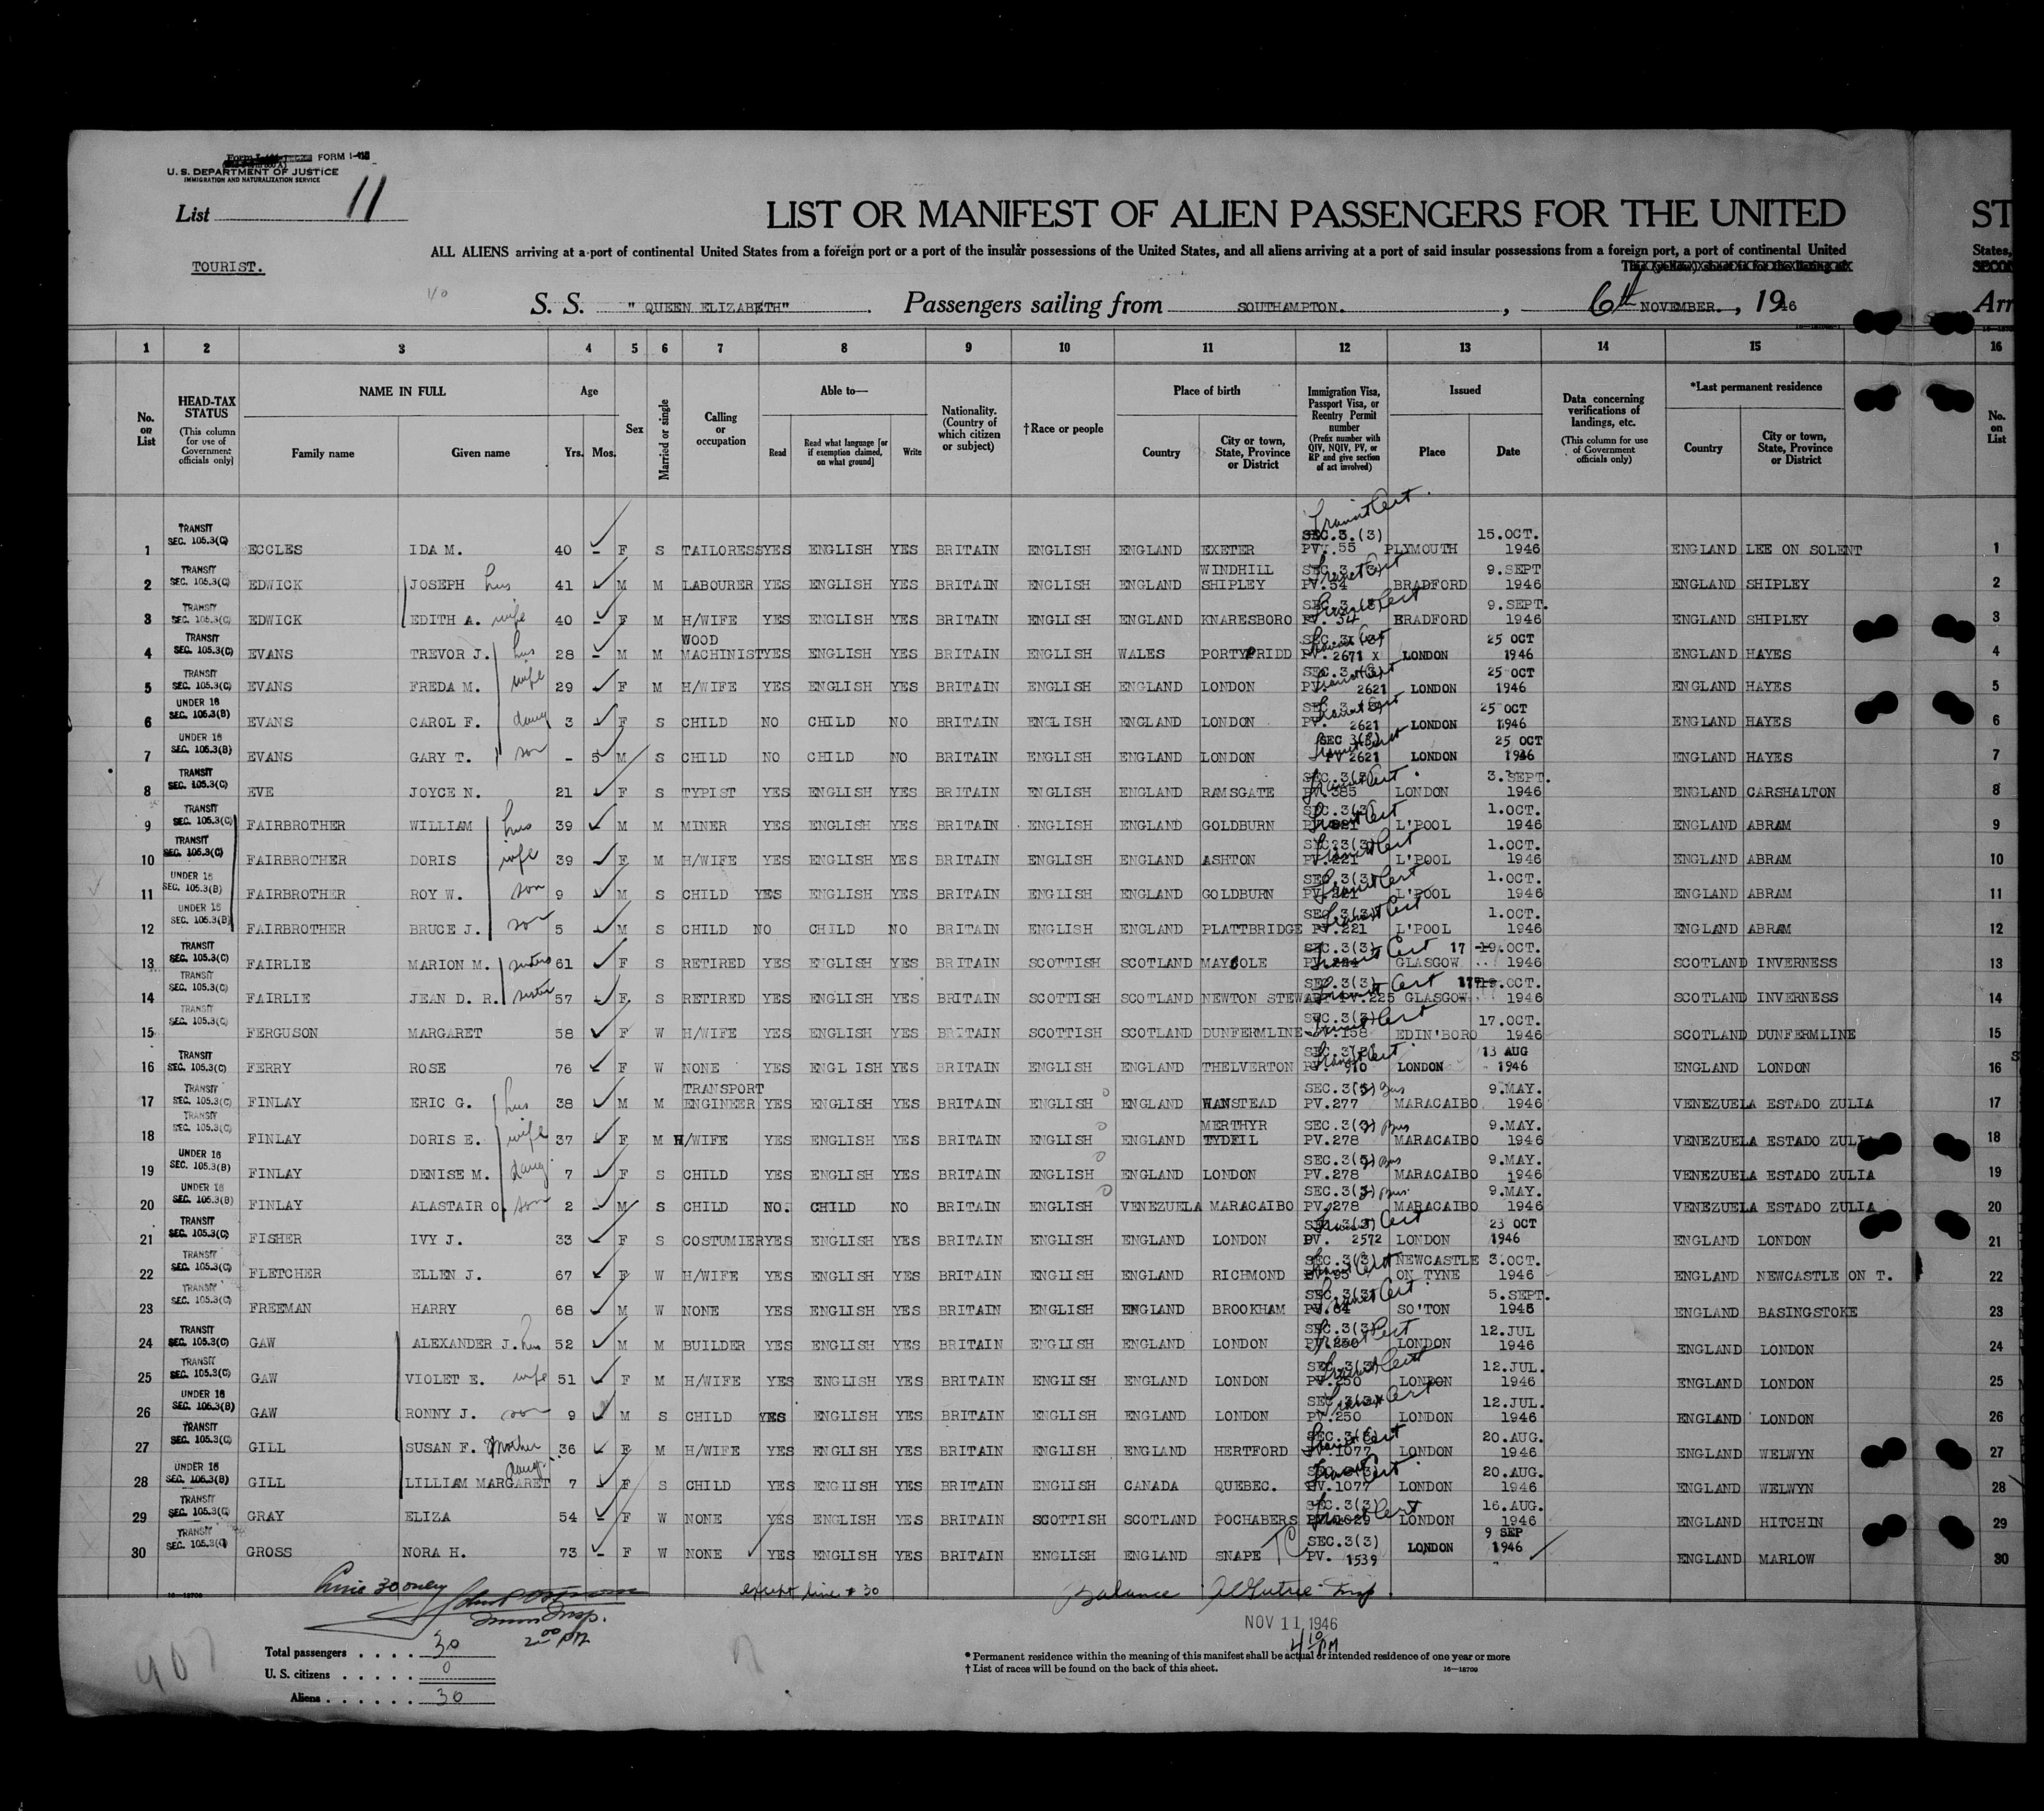 FORM I-415
U. S. DEPARTMENT OF JUSTICE
IMMIGRATION AND NATURALIZATION SERVICE
List 11
LIST OR MANIFEST OF ALIEN PASSENGERS FOR THE UNITED ST
ALL ALIENS arriving at a port of continental United States from a foreign port or a port of the insular possessions of the United States, and all aliens arriving at a port of said insular possessions from a foreign port, a port of continental United States,
TOURIST.
S. S. "QUEEN ELIZABETH" . Passengers sailing from SOUTHAMPTON. , 6th NOVEMBER. , 1946 Arr
1 2 3 4 5 6 7 8 9 10 11 12 13 14 15 16
No. on List
HEAD-TAX STATUS (This column for use of Government officials only)
NAME IN FULL Family name Given name
Age Yrs. Mos.
Sex
Married or single
Calling or occupation
Able to— Read Read what language [or if exemption claimed, on what ground] Write
Nationality. (Country of which citizen or subject)
†Race or people
Place of birth Country City or town, State, Province or District
Immigration Visa, Passport Visa, or Reentry Permit number (Prefix number with QIV, NQIV, PV, or RP and give section of act involved)
Issued Place Date
Data concerning verifications of landings, etc. (This column for use of Government officials only)
*Last permanent residence Country City or town, State, Province or District
No. on List
1 TRANSIT SEC. 105.3(C) ECCLES IDA M. 40 – F S TAILORESS YES ENGLISH YES BRITAIN ENGLISH ENGLAND EXETER SEC.3.(3) Transit Cert. PV.55 PLYMOUTH 15.OCT. 1946 ENGLAND LEE ON SOLENT 1
2 TRANSIT SEC. 105.3(C) EDWICK JOSEPH hus 41 M M LABOURER YES ENGLISH YES BRITAIN ENGLISH ENGLAND WINDHILL SHIPLEY SEC.3.(3) Transit Cert PV.54 BRADFORD 9.SEPT 1946 ENGLAND SHIPLEY 2
3 TRANSIT SEC. 105.3(C) EDWICK EDITH A. wife 40 – F M H/WIFE YES ENGLISH YES BRITAIN ENGLISH ENGLAND KNARESBORO SEC.3.(3) Transit Cert PV.54 BRADFORD 9.SEPT. 1946 ENGLAND SHIPLEY 3
4 TRANSIT SEC. 105.3(C) EVANS TREVOR J. hus 28 – M M WOOD MACHINIST YES ENGLISH YES BRITAIN ENGLISH WALES PORTYPRIDD SEC.3.(3) Transit Cert PV. 2671 X LONDON 25 OCT 1946 ENGLAND HAYES 4
5 TRANSIT SEC. 105.3(C) EVANS FREDA M. wife 29 F M H/WIFE YES ENGLISH YES BRITAIN ENGLISH ENGLAND LONDON SEC.3.(3) Transit Cert PV. 2621 LONDON 25 OCT 1946 ENGLAND HAYES 5
6 UNDER 16 SEC. 105.3(B) EVANS CAROL F. daug 3 F S CHILD NO CHILD NO BRITAIN ENGLISH ENGLAND LONDON SEC.3.(3) Transit Cert PV. 2621 LONDON 25 OCT 1946 ENGLAND HAYES 6
7 UNDER 16 SEC. 105.3(B) EVANS GARY T. son – 5 M S CHILD NO CHILD NO BRITAIN ENGLISH ENGLAND LONDON SEC 3(3) Transit Cert PV 2621 LONDON 25 OCT 1946 ENGLAND HAYES 7
8 TRANSIT SEC. 105.3(C) EVE JOYCE N. 21 F S TYPIST YES ENGLISH YES BRITAIN ENGLISH ENGLAND RAMSGATE SEC.3(3) Transit Cert. PV.385 LONDON 3.SEPT. 1946 ENGLAND CARSHALTON 8
9 TRANSIT SEC. 105.3(C) FAIRBROTHER WILLIAM hus 39 M M MINER YES ENGLISH YES BRITAIN ENGLISH ENGLAND GOLDBURN SEC.3(3) Transit Cert PV.221 L'POOL 1.OCT. 1946 ENGLAND ABRAM 9
10 TRANSIT SEC. 105.3(C) FAIRBROTHER DORIS wife 39 F M H/WIFE YES ENGLISH YES BRITAIN ENGLISH ENGLAND ASHTON SEC.3(3) Transit Cert PV.221 L'POOL 1.OCT. 1946 ENGLAND ABRAM 10
11 UNDER 16 SEC. 105.3(B) FAIRBROTHER ROY W. son 9 M S CHILD YES ENGLISH YES BRITAIN ENGLISH ENGLAND GOLDBURN SEC.3(3) Transit Cert PV.221 L'POOL 1.OCT. 1946 ENGLAND ABRAM 11
12 UNDER 16 SEC. 105.3(B) FAIRBROTHER BRUCE J. son 5 M S CHILD NO CHILD NO BRITAIN ENGLISH ENGLAND PLATTBRIDGE SEC.3(3) Transit Cert PV.221 L'POOL 1.OCT. 1946 ENGLAND ABRAM 12
13 TRANSIT SEC. 105.3(C) FAIRLIE MARION M. sisters 61 F S RETIRED YES ENGLISH YES BRITAIN SCOTTISH SCOTLAND MAYBOLE SEC.3(3) Transit Cert GLASGOW 17 19.OCT. 1946 SCOTLAND INVERNESS 13
14 TRANSIT SEC. 105.3(C) FAIRLIE JEAN D. R. sister 57 F S RETIRED YES ENGLISH YES BRITAIN SCOTTISH SCOTLAND NEWTON STEWART SEC.3(3) Transit Cert PV.225 GLASGOW 17 19.OCT. 1946 SCOTLAND INVERNESS 14
15 TRANSIT SEC. 105.3(C) FERGUSON MARGARET 58 F W H/WIFE YES ENGLISH YES BRITAIN SCOTTISH SCOTLAND DUNFERMLINE SEC.3(3) Transit Cert PV.158 EDIN'BORO 17.OCT. 1946 SCOTLAND DUNFERMLINE 15
16 TRANSIT SEC. 105.3(C) FERRY ROSE 76 F W NONE YES ENGL ISH YES BRITAIN ENGLISH ENGLAND THELVERTON SEC.3(3) Transit Cert. PV. 910 LONDON 13 AUG 1946 ENGLAND LONDON 16
17 TRANSIT SEC. 105.3(C) FINLAY ERIC G. hus 38 M M TRANSPORT ENGINEER YES ENGLISH YES BRITAIN ENGLISH ENGLAND WANSTEAD SEC.3(3) Bus PV.277 MARACAIBO 9.MAY. 1946 VENEZUELA ESTADO ZULIA 17
18 TRANSIT SEC. 105.3(C) FINLAY DORIS E. wife 37 F M H/WIFE YES ENGLISH YES BRITAIN ENGLISH ENGLAND MERTHYR TYDFIL SEC.3(3) Bus PV.278 MARACAIBO 9.MAY. 1946 VENEZUELA ESTADO ZULIA 18
19 UNDER 16 SEC. 105.3(B) FINLAY DENISE M. daug 7 F S CHILD YES ENGLISH YES BRITAIN ENGLISH ENGLAND LONDON SEC.3(3) Bus PV.278 MARACAIBO 9.MAY. 1946 VENEZUELA ESTADO ZULIA 19
20 UNDER 16 SEC. 105.3(B) FINLAY ALASTAIR O. son 2 M S CHILD NO. CHILD NO BRITAIN ENGLISH VENEZUELA MARACAIBO SEC.3(3) Bus. PV.278 MARACAIBO 9.MAY. 1946 VENEZUELA ESTADO ZULIA 20
21 TRANSIT SEC. 105.3(C) FISHER IVY J. 33 F S COSTUMIER YES ENGLISH YES BRITAIN ENGLISH ENGLAND LONDON SEC.3(3) Transit Cert PV. 2572 LONDON 23 OCT 1946 ENGLAND LONDON 21
22 TRANSIT SEC. 105.3(C) FLETCHER ELLEN J. 67 F W H/WIFE YES ENGLISH YES BRITAIN ENGLISH ENGLAND RICHMOND SEC.3(3) Transit Cert PV.95 NEWCASTLE ON TYNE 3.OCT. 1946 ENGLAND NEWCASTLE ON T. 22
23 TRANSIT SEC. 105.3(C) FREEMAN HARRY 68 M W NONE YES ENGLISH YES BRITAIN ENGLISH ENGLAND BROOKHAM SEC.3(3) Transit Cert PV.64 SO'TON 5.SEPT. 1946 ENGLAND BASINGSTOKE 23
24 TRANSIT SEC. 105.3(C) GAW ALEXANDER J. hus 52 M M BUILDER YES ENGLISH YES BRITAIN ENGLISH ENGLAND LONDON SEC.3(3) Transit Cert PV.250 LONDON 12.JUL 1946 ENGLAND LONDON 24
25 TRANSIT SEC. 105.3(C) GAW VIOLET E. wife 51 F M H/WIFE YES ENGLISH YES BRITAIN ENGLISH ENGLAND LONDON SEC.3(3) Transit Cert PV.250 LONDON 12.JUL. 1946 ENGLAND LONDON 25
26 UNDER 16 SEC. 105.3(B) GAW RONNY J. son 9 M S CHILD YES ENGLISH YES BRITAIN ENGLISH ENGLAND LONDON SEC.3(3) Transit Cert PV.250 LONDON 12.JUL. 1946 ENGLAND LONDON 26
27 TRANSIT SEC. 105.3(C) GILL SUSAN F. Mother 36 F M H/WIFE YES ENGLISH YES BRITAIN ENGLISH ENGLAND HERTFORD SEC.3(3) Transit Cert PV.1077 LONDON 20.AUG. 1946 ENGLAND WELWYN 27
28 UNDER 16 SEC. 105.3(B) GILL LILLIAM MARGARET daug. 7 F S CHILD YES ENGLISH YES BRITAIN ENGLISH CANADA QUEBEC. SEC.3(3) Transit Cert PV.1077 LONDON 20.AUG. 1946 ENGLAND WELWYN 28
29 TRANSIT SEC. 105.3(C) GRAY ELIZA 54 – F W NONE YES ENGLISH YES BRITAIN SCOTTISH SCOTLAND POCHABERS SEC.3(3) Transit Cert PV.1029 LONDON 16.AUG. 1946 ENGLAND HITCHIN 29
30 TRANSIT SEC. 105.3(C) GROSS NORA H. 73 – F W NONE YES ENGLISH YES BRITAIN ENGLISH ENGLAND SNAPE TC SEC.3(3) PV. 1539 LONDON 9 SEP 1946 ENGLAND MARLOW 30
Line 30 only
except line # 30
Balance
Insp.
Imm Insp.
2 00 PM
NOV 11 1946
4 10 PM
Total passengers . . . . 30
U. S. citizens . . . . . 0
Aliens . . . . . . 30
407
* Permanent residence within the meaning of this manifest shall be actual or intended residence of one year or more
† List of races will be found on the back of this sheet.
16—18709